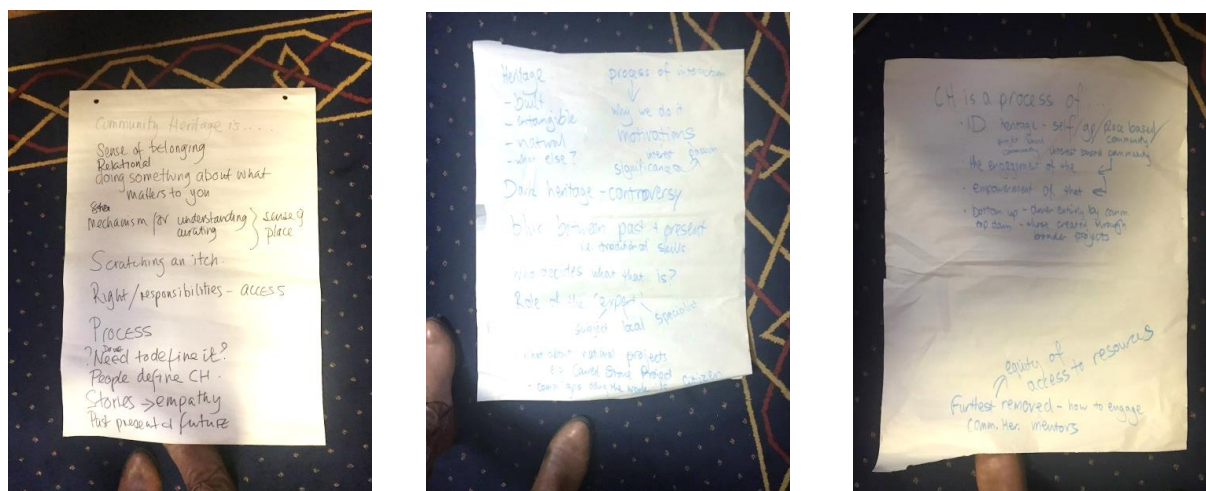 Community Heritage is.....
Sense of belonging
Relational
doing something about what
matters to you
mechanism for understanding } sense of
curating place
Scratching an itch.
Right/responsibilities - ACCESS
PROCESS
? Need to define it?
People define CH.
Stories → empathy
Past present & future
Heritage
- built
- intangible
- natural
- what else?
process of interaction
why we do it
motivations
interest passion
significance
Dark heritage - controversy
blur between past + present
i.e. traditional skills
Who decides what that is?
Role of the 'expert'
subject local specialist
what about national projects
e.g. Carved Stone Project
citizen
CH is a process of...
ID heritage - self/gp/place based/
community
interest based community
the engagement of the
empowerment of that
bottom up - driven entirely by comm.
top down - through
broader projects
equity of
access to resources
Furthest removed - how to engage
Comm. Her. mentors